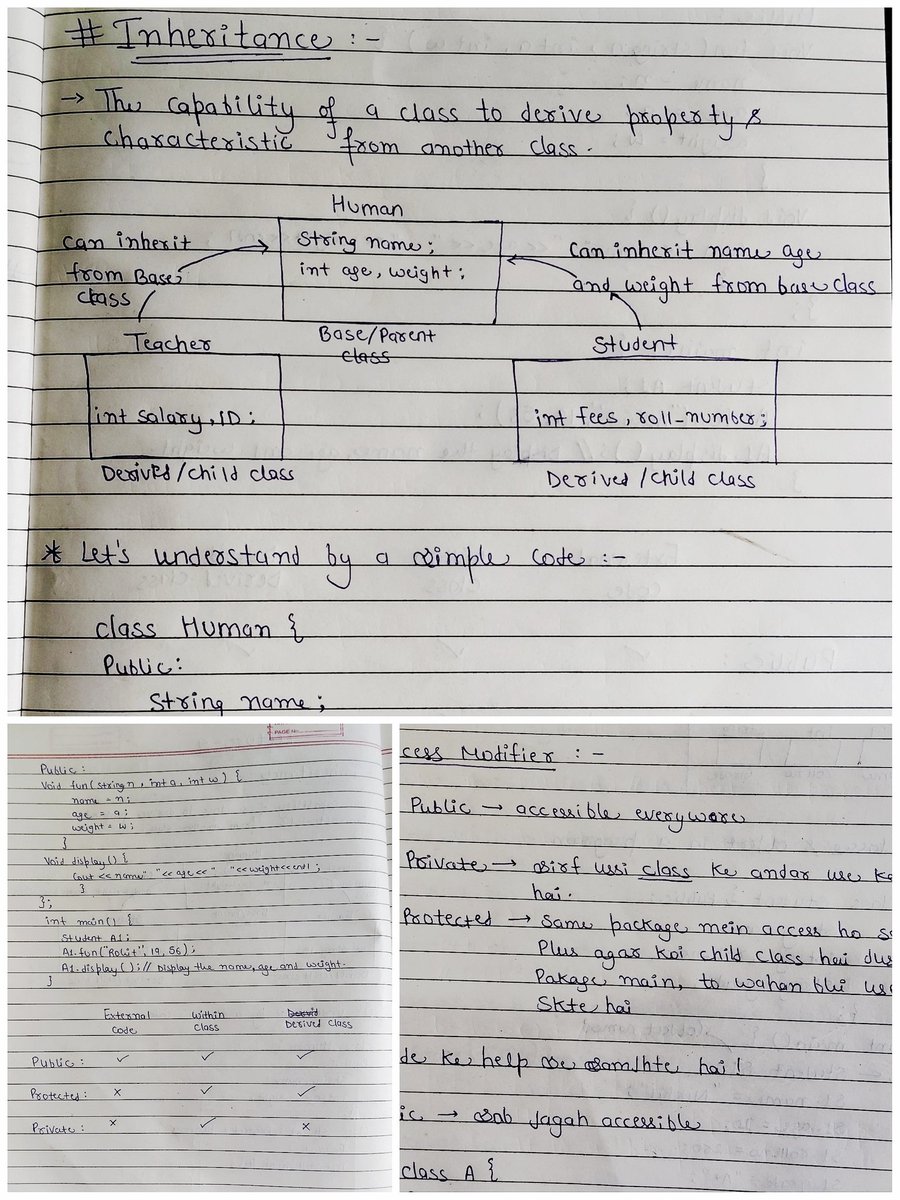 # Inheritance :-
→ The capability of a class to derive property &
characteristic from another class.
Human
String name;
int age, weight;
Base/Parent
class
can inherit
from Base
class
Can inherit name age
and weight from base class
Teacher
int salary, ID;
Derived/child class
Student
int fees, roll_number;
Derived/child class
* Let's understand by a simple code :-
class Human {
Public:
String name;
PAGE No.
Public:
Void fun(string n, int a, int w) {
name = n;
age = a;
weight = w;
}
Void display() {
Cout<<name" "<<age<<" "<<weight<<endl;
}
};
int main() {
Student A1;
A1.fun("Rohit", 19, 56);
A1.display(); // Display the name, age and weight.
}
External Within Derived class
Code class
Public: ✓ ✓ ✓
Protected: × ✓ ✓
Private: × ✓ ×
cess Modifier :-
Public → accessible everyware
Private → sirf ussi class ke andar use
hai.
Protected → Same package mein access ho
Plus agar koi child class hai
Pakage main, to wahan bhi
Skte hai
de ke help se samjhte hai!
ic → sab Jagah accessible
class A {